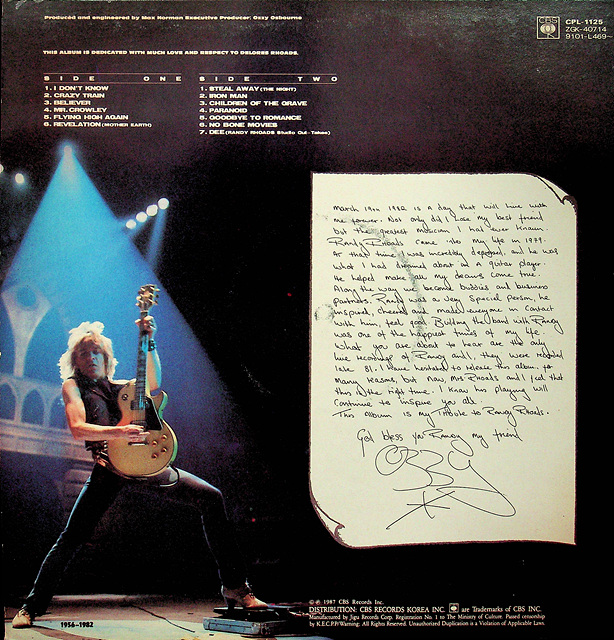 Produced and engineered by Max Norman Executive Producer: Ozzy Osbourne
CBS
CPL-1125
ZGK-40714
9101-L469~
THIS ALBUM IS DEDICATED WITH MUCH LOVE AND RESPECT TO DELORES RHOADS.
SIDE ONE
1. I DON'T KNOW
2. CRAZY TRAIN
3. BELIEVER
4. MR. CROWLEY
5. FLYING HIGH AGAIN
6. REVELATION (MOTHER EARTH)
SIDE TWO
1. STEAL AWAY (THE NIGHT)
2. IRON MAN
3. CHILDREN OF THE GRAVE
4. PARANOID
5. GOODBYE TO ROMANCE
6. NO BONE MOVIES
7. DEE (RANDY RHOADS Studio Out-Takes)
March 19th 1982 is a day that will live with
me forever. Not only did I lose my best friend
but the greatest musician I had ever known.
Randy Rhoads came into my life in 1979.
At that time I was incredibly depressed, and he was
what I had dreamed about in a guitar player.
He helped make all my dreams come true.
Along the way we became buddies and business
partners. Randy was a very special person, he
inspired, cheered and made everyone in contact
with him, feel good. Building the band with Randy
was one of the happiest times of my life.
What you are about to hear are the only
live recordings of Randy and I, they were recorded
late 81. I have hesitated to release this album for
many reasons, but now, Mrs Rhoads and I feel that
this is the right time. I know his playing will
continue to inspire you all.
This album is my Tribute to Randy Rhoads.
God bless you Randy my friend
OZZY
1956-1982
© ℗ 1987 CBS Records Inc.
DISTRIBUTION: CBS RECORDS KOREA INC. are Trademarks of CBS INC.
Manufactured by Jigu Records Corp. Registration No. 1 to The Ministry of Culture. Passed censorship
by K.E.C.P.P/Warning: All Rights Reserved. Unauthorized Duplication is a Violation of Applicable Laws.